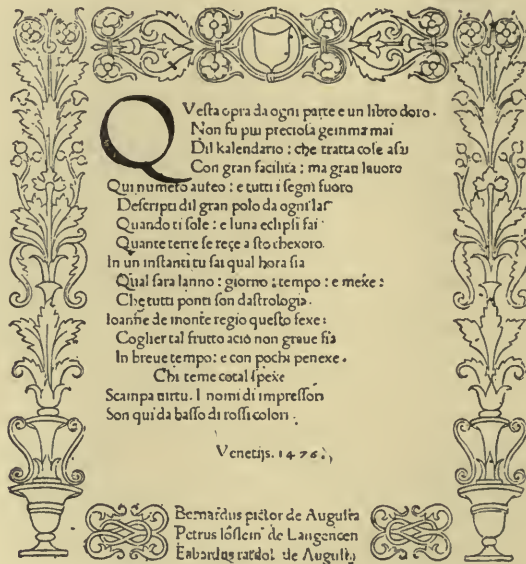 QVesta opra da ogni parte e un libro doro.
Non fu piu preciosa gemma mai
Dil kalendario: che tratta cose asai
Con gran facilita: ma gran lauoro
Qui numero aureo: e tutti i segni fuoro
Descripti dil gran polo da ogni lai
Quando il sole: e luna eclipsi fai
Quante terre se rece a sto thexoro.
In un instanti tu sai qual hora sia
Qual sara lanno: giorno: tempo: e mexe:
Che tutti ponti son dastrologia.
Ioanne de monte regio questo fexe:
Coglier tal frutto acio non graue sia
In breue tempo: e con pochi penexe.
Chi teme cotal spexe
Scampa uirtu. I nomi di impressori
Son qui da basso di rossi colori.
Venetijs. 1476.
Bernardus pictor de Augusta
Petrus löslein de Langencen
Erhardus ratdolt de Augusta